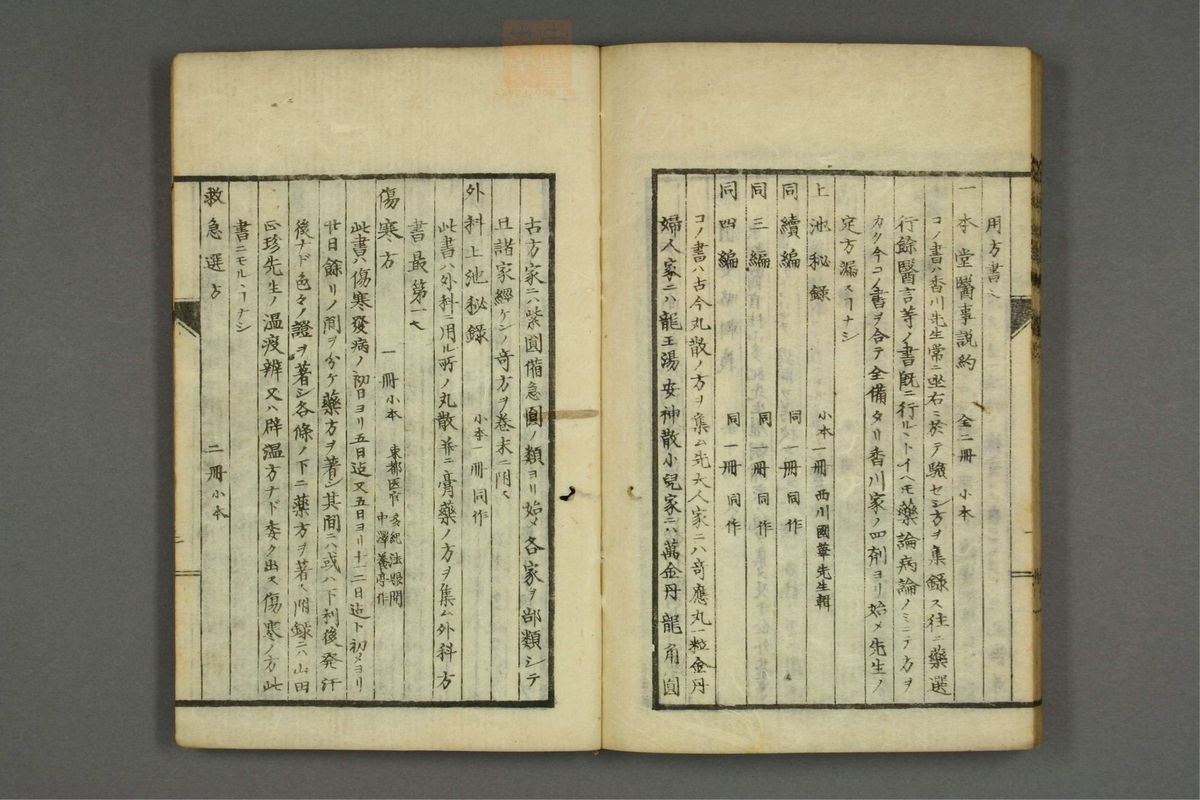 用方書ヘ
一本堂醫事説約 全二冊 小本
コノ書ハ香川先生常ニ坐右ニ於テ驗セシ方ヲ集録ス往ニ藥選
行餘醫言等ノ書既ニ行ルヽトイヘモ藥論病論ノミニテ方ヲ
カク今コノ書ヲ合テ全備タリ香川家ノ四剤ヨリ始メ先生ノ
定方漏スヿナシ
上池秘録 小本一冊 西川國華先生輯
同續編 同一冊 同作
同三編 同一冊 同作
同四編 同一冊 同作
コノ書ハ古今丸散ノ方ヲ集ム先大人家ニハ竒應丸一粒金丹
婦人家ニハ龍王湯安神散小兒家ニハ萬金丹龍角圓
古方家ニハ紫圓備急圓ノ類ヨリ始メ各家ヲ部類シテ
且諸家經ケンノ竒方ヲ巻末ニ附ス
外科上池秘録 小本一冊 同作
此書ハ外科ニ用ル所ノ丸散并ニ膏藥ノ方ヲ集ム外科方
書最第一ヘ
傷寒方 一冊小本 東都医官 多紀法眼閲 中澤養亭作
此書ハ傷寒發病ノ初日ヨリ五日迠又五日ヨリ十二日迠ト初メヨリ
廿日餘リノ間ヲ分ケ藥方ヲ著シ其間ニハ或ハ下利後発汗
後ナド色々ノ證ヲ著シ各條ノ下ニ藥方ヲ著ス附録ニハ山田
正珍先生ノ温疫辨又ハ辟温方ナド委ク出ス傷寒ノ方此
書ニモルヽヿナシ
救急選方 二冊小本